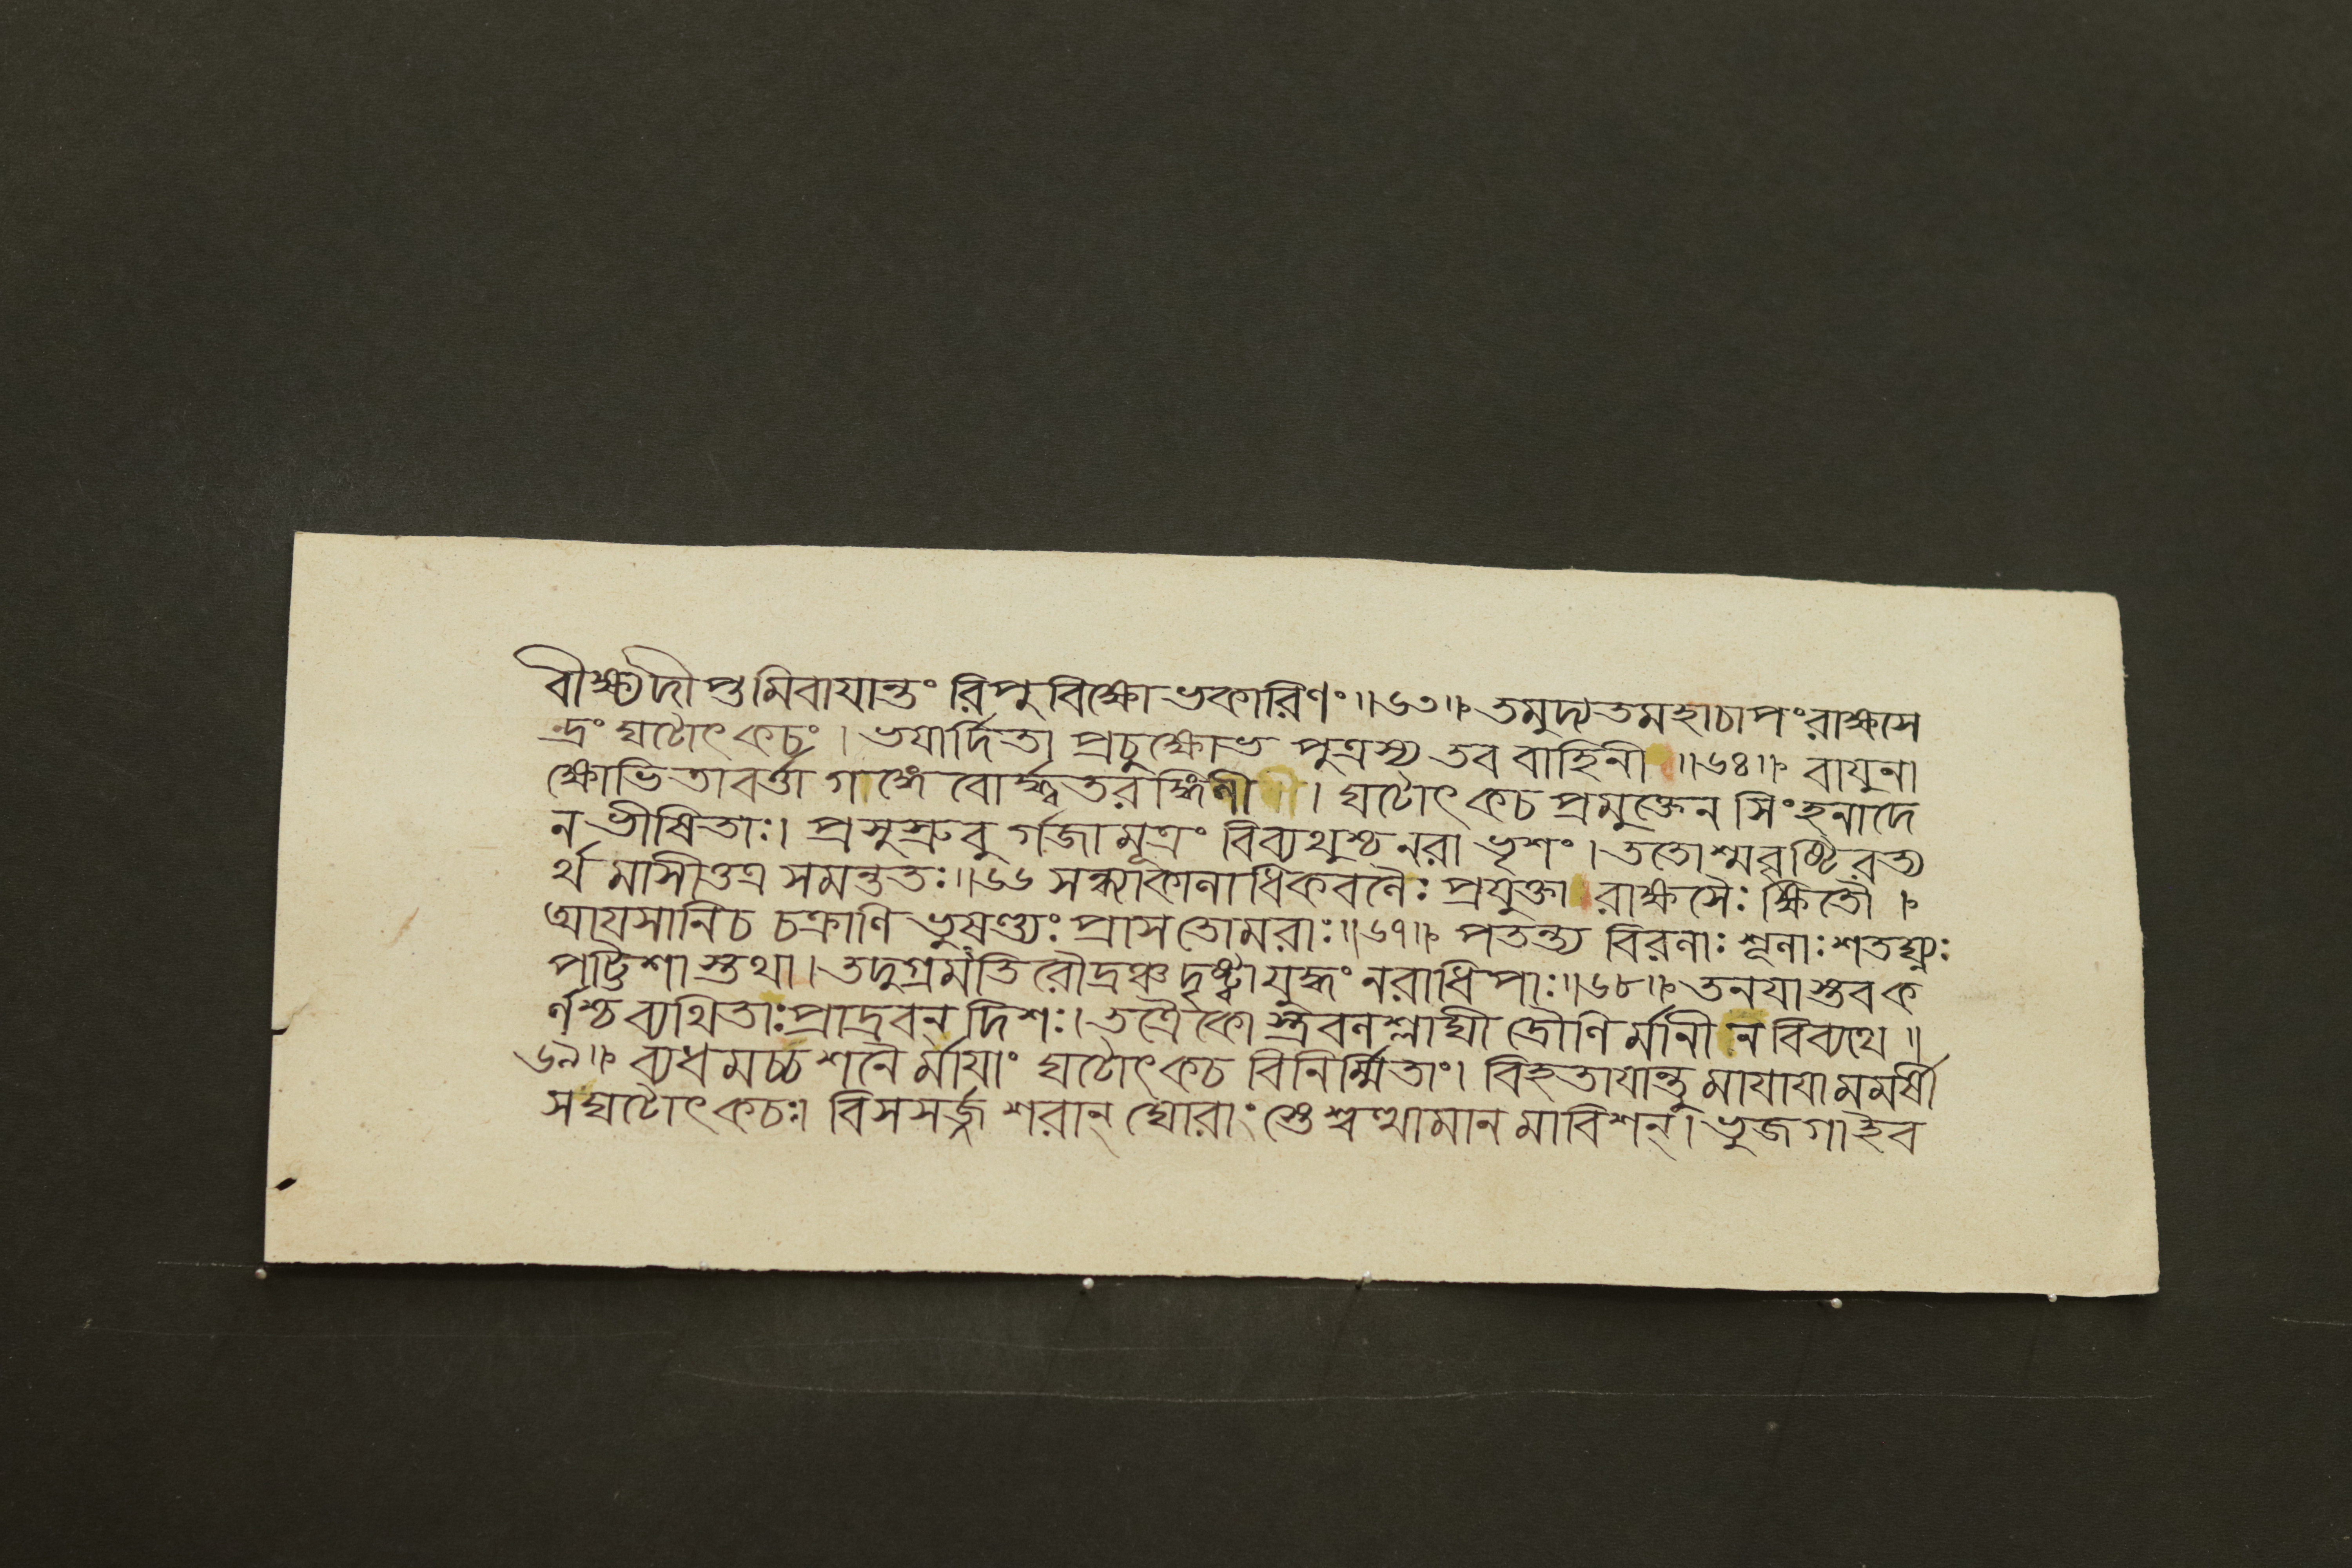 বীক্ষ্যদীপ্তমিবাযান্তং রিপুবিক্ষোভকারিণং॥৬৩॥ তমুদ্যতমহাচাপংরাক্ষসে
ন্দ্রং ঘটোৎকচং । ভযার্দিতা প্রচুক্ষোভ পুত্রস্য তব বাহিনী ॥৬৪॥ বাযুনা
ক্ষোভিতাবর্ত্তা গাঙ্গে বোর্দ্ধ্বতরঙ্গিণী । ঘটোৎকচপ্রমুক্তেন সিংহনাদে
ন ভীষিতাঃ। প্রসুস্রুবু র্গজামূত্রং বিব্যথুশ্চ নরা ভৃশং । ততোশ্মবৃষ্টিরত্য
র্থ মাসীত্তত্র সমন্ততঃ॥৬৬ সন্ধ্যাকানাধিকবলৈঃ প্রযুক্তা রাক্ষসৈঃ ক্ষিতৌ ।
আযসানিচ চক্রাণি ভুষণ্ড্যঃ প্রাস তোমরাঃ॥৬৭॥ পতন্ত্য বিরলাঃ শূলাঃ শতঘ্ন্যঃ
পট্টিশা স্তথা। তদুগ্রমতি রৌদ্রঞ্চ দৃষ্ট্বাযুদ্ধং নরাধিপাঃ॥৬৮॥ তনযাস্তবক
র্ণশ্চ ব্যথিতাঃপ্রাদ্রবন্ দিশঃ। তত্রৈকো স্ত্রবলশ্লাঘী দ্রৌণি র্মানী ন বিব্যথে ॥
৬৯॥ ব্যধমচ্চ শরৈ র্মাযাং ঘটোৎকচ বিনির্ম্মিতাং। বিহতাযান্তু মাযাযামমর্ষী
সঘটোৎকচঃ। বিসসর্জ্জ শরান্ ঘোরাং স্তেশ্বত্থামানমাবিশন্। ভুজগাইব